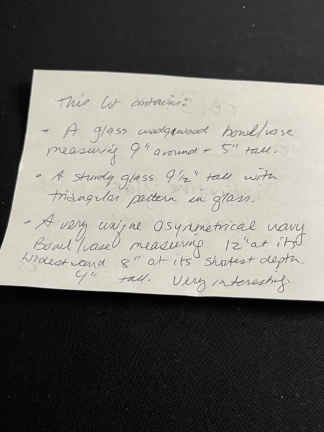 This lot contains:
- A glass wedgewood bowl/vase
measuring 9" around + 5" tall.
- A sturdy glass 9 1/2" tall with
triangular pattern in glass.
- A very unique asymmetrical wavy
Bowl/vase measuring 12" at its
widest and 8" at its shortest depth.
4" tall. Very interesting